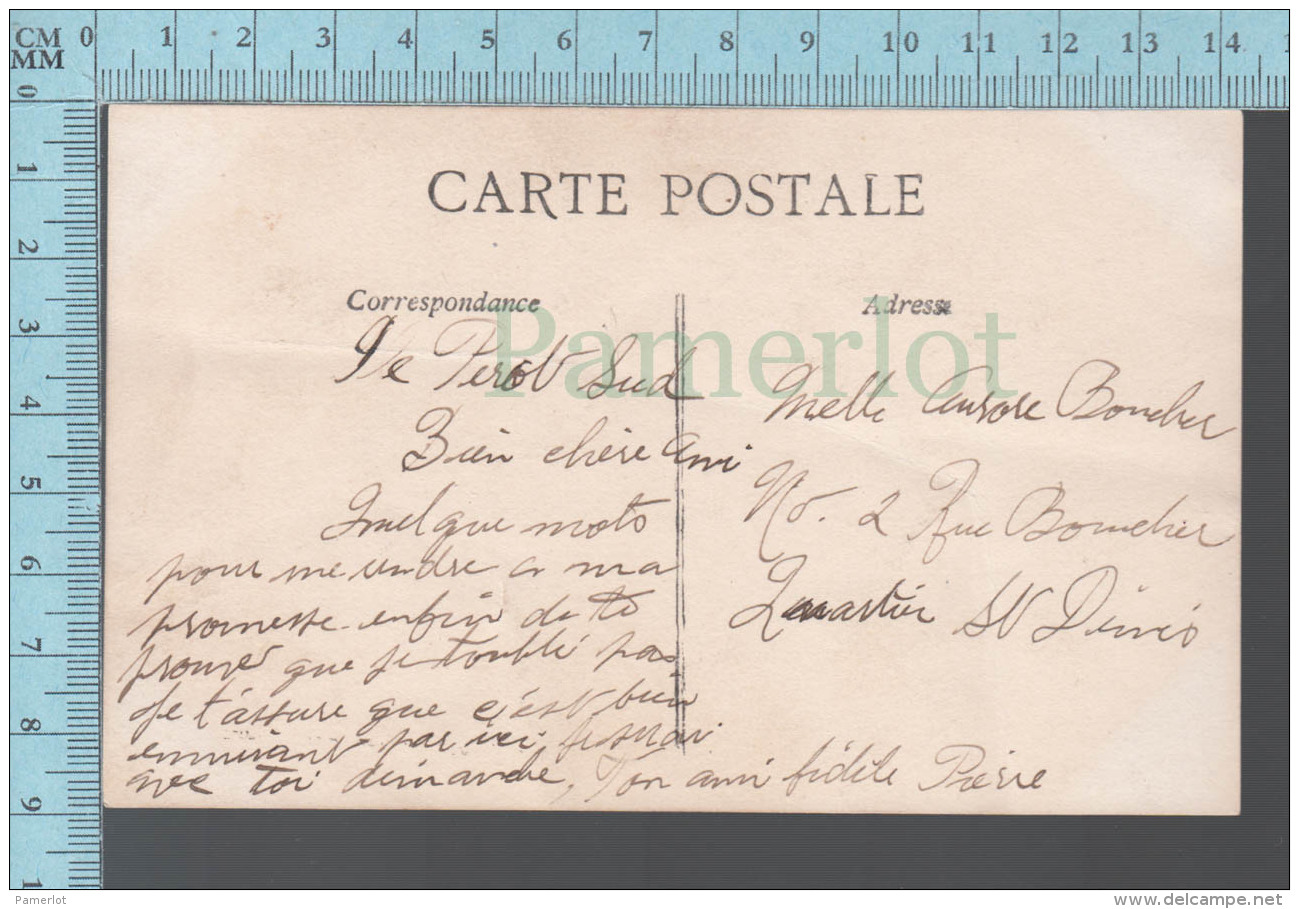 CM 0 1 2 3 4 5 6 7 8 9 10 11 12 13 14 1
MM
0 1 2 3 4 5 6 7 8 9 1
CARTE POSTALE
Correspondance
Ile Perot Sud
Bien chère ami
Quelque mots
pour me rendre a ma
promesse enfin de te
prouvé que je toublé pas
Je t'assure que c'est bien
ennuiant par ici, je srai
avec toi dimanche, Ton ami fidèle Pierre
Adresse
Melle Aurore Boucher
No. 2 Rue Boucher
Quartier St Dinis
Pamerlot
Pamerlot
www.delcampe.net